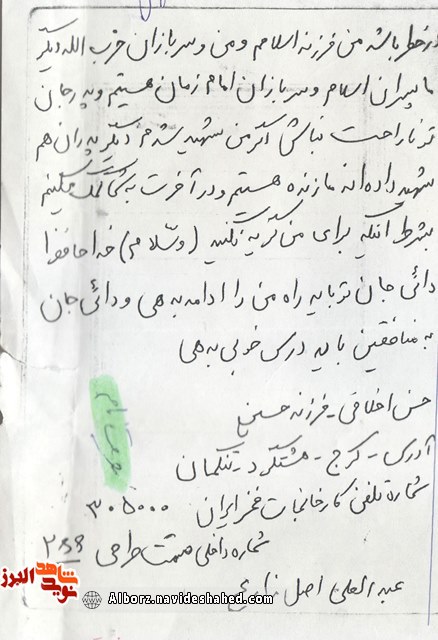 در خطر باشد من فرزند اسلامم و من و سربازان حزب الله دیگر
ما پسران اسلام و سربازان امام زمان هستیم و پدر جان
تو ناراحت نباش اگر من شهید شدم دیگر پدران هم
شهید داده‌اند ما زنده هستیم و در آخرت به شما کمک میکنیم
بشرط آنکه برای من گریه نکنید (والسلام) خداحافظ
دائی جان تو باید راه من را ادامه بدهی و دائی جان
به منافقین باید درس خوبی بدهی
حسن اخلاقی - فرزند حسینعلی
آدرس - کرج - هشتگرد - تنکمان
شماره تلفن کارخانجات فخر ایران ۳۰۵۰۰۰
شماره داخلی قسمت طراحی ۲۵۹
عبدالعلی اصل زارع
شاهد
نوید البرز
Alborz.navideshahed.com